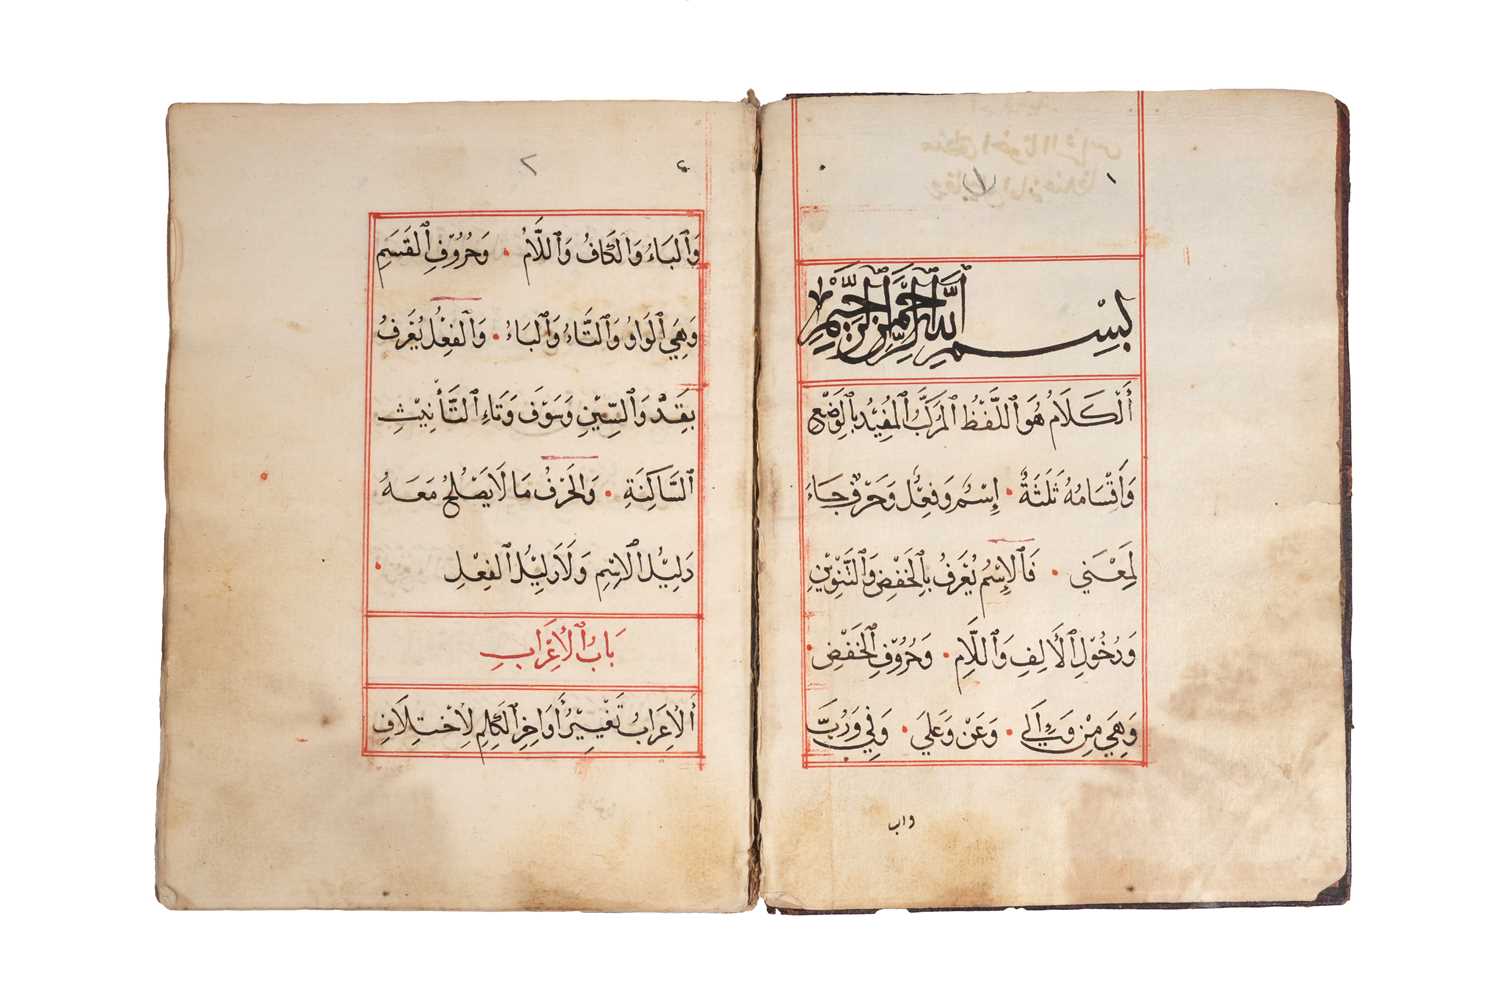 ١
بِسْمِ اللَّهِ الرَّحْمَٰنِ الرَّحِيمِ
أَلْكَلَامُ هُوَ اللَّفْظُ الْمُرَكَّبُ الْمُفِيْدُ بِالْوَضْعِ
وَأَقْسَامُهُ ثَلَثَةٌ · إِسْمٌ وَفِعْلٌ وَحَرْفٌ جَاءَ
لِمَعْنًي · فَالْإِسْمُ يُعْرَفُ بِالْخَفْضِ وَالتَّنْوِيْنِ
وَدُخُوْلِ الْأَلِفِ وَاللَّامِ · وَحُرُوْفِ الْخَفْضِ ·
وَهِيَ مِنْ وَإِلَي · وَعَنْ وَعَلَي · وَفِي وَرُبَّ
واب
٢
وَالْبَاءُ وَالْكَافُ وَاللَّامُ · وَحُرُوْفِ الْقَسَمِ
وَهِيَ الْوَاوُ وَالتَّاءُ وَالْبَاءُ · وَالْفِعْلُ يُعْرَفُ
بِقَدْ وَالسِّيْنِ وَسَوْفَ وَتَاءِ التَّأْنِيْثِ
السَّاكِنَةِ · وَالْحَرْفُ مَا لَا يَصْلُحُ مَعَهُ
دَلِيْلُ الْاِسْمِ وَلَا دَلِيْلُ الْفِعْلِ ·
بَابُ الْاِعْرَابِ
أَلْاِعْرَابُ تَغْيِيْرُ أَوَاخِرِ الْكَلِمِ لِاخْتِلَافِ